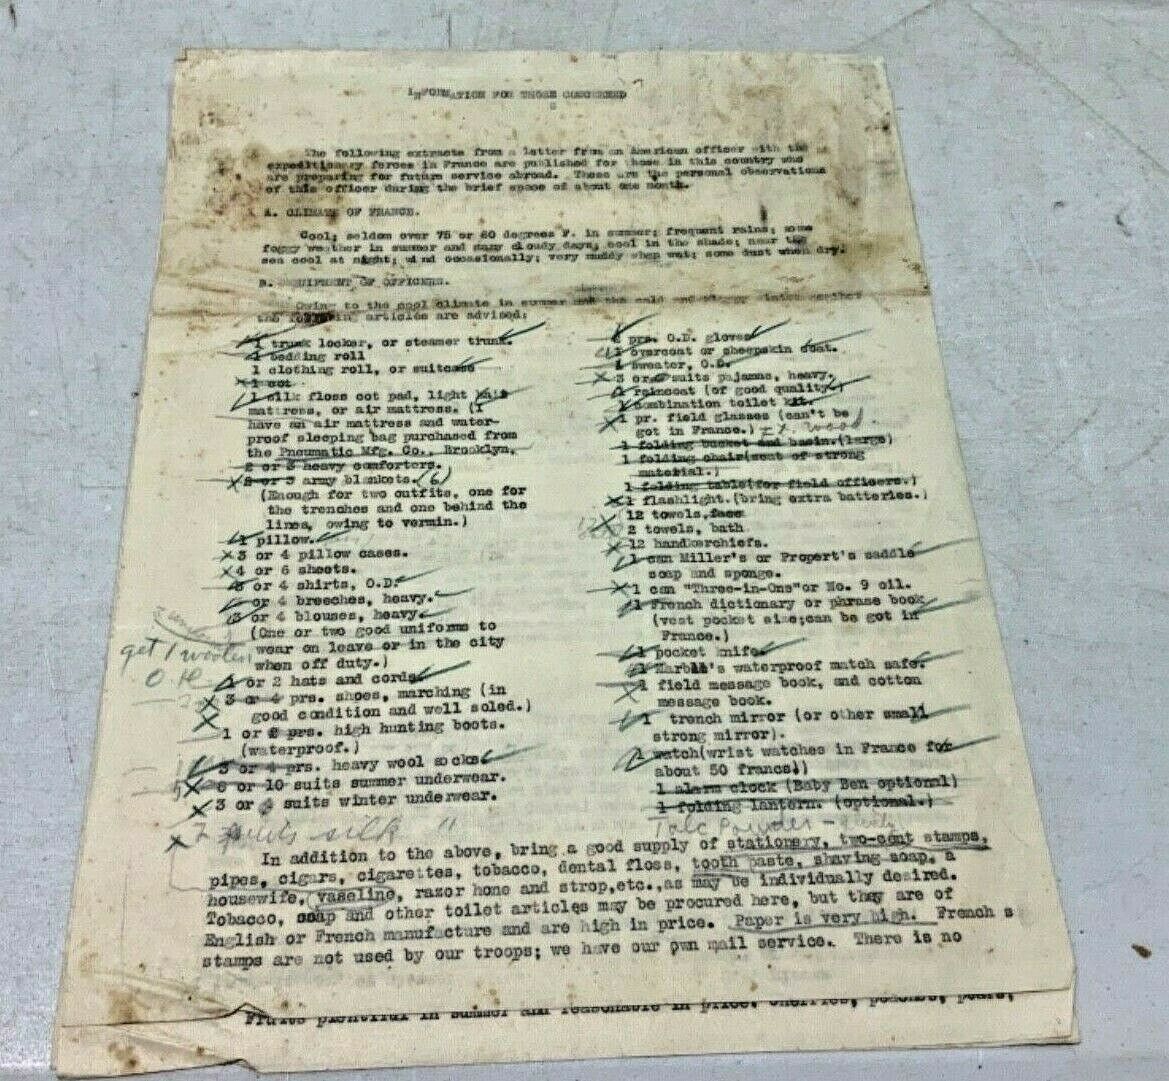 INFORMATION FOR THOSE CONCERNED
The following extracts from a letter from an American officer with the
expeditionary forces in France are published for those in this country who
are preparing for future service abroad. These are the personal observations
of this officer during the brief space of about one month.
A. CLIMATE OF FRANCE.
Cool; seldom over 75 or 80 degrees F. in summer; frequent rains; some
foggy weather in summer and many cloudy days, cool in the shade; near the
sea cool at night; wind occasionally; very muddy when wet; some dust when dry.
B. EQUIPMENT OF OFFICERS.
Owing to the cool climate in summer and the cold and winter weather
the following articles are advised:
1 trunk locker, or steamer trunk.
1 bedding roll
1 clothing roll, or suitcase
1 cot
1 silk floss cot pad, light hair
mattress, or air mattress. (I
have an air mattress and water-
proof sleeping bag purchased from
the Pneumatic Mfg. Co., Brooklyn.
2 or 3 heavy comforters.
2 or 3 army blankets. (6)
(Enough for two outfits, one for
the trenches and one behind the
lines, owing to vermin.)
1 pillow.
3 or 4 pillow cases.
4 or 6 sheets.
3 or 4 shirts, O.D.
or 4 breeches, heavy.
3 or 4 blouses, heavy.
(One or two good uniforms to
wear on leave or in the city
when off duty.)
get 1 woolen
O.K.
1 or 2 hats and cords
3 or 4 prs. shoes, marching (in
good condition and well soled.)
1 or 2 prs. high hunting boots.
(waterproof.)
3 or 4 prs. heavy wool socks
8 or 10 suits summer underwear.
3 or 4 suits winter underwear.
2 suits silk "
prs. O.D. gloves
1 overcoat or sheepskin coat.
1 sweater, O.D.
3 or 6 suits pajamas, heavy.
1 raincoat (of good quality.)
1 combination toilet kit.
1 pr. field glasses (can't be
got in France.)
1 folding bucket and basin.(large)
1 folding chair(seat of strong
material.)
1 folding table(for field officers.)
1 flashlight.(bring extra batteries.)
12 towels, face
2 towels, bath
12 handkerchiefs.
1 can Miller's or Propert's saddle
soap and sponge.
1 can "Three-in-One" or No. 9 oil.
1 French dictionary or phrase book
(vest pocket size;can be got in
France.)
1 pocket knife
1 Marble's waterproof match safe.
1 field message book, and cotton
message book.
1 trench mirror (or other small
strong mirror).
watch(wrist watches in France for
about 50 francs.)
1 alarm clock (Baby Ben optional)
1 folding lantern. (optional.)
Talc Powder -
In addition to the above, bring a good supply of stationary, two-cent stamps,
pipes, cigars, cigarettes, tobacco, dental floss, tooth paste, shaving soap, a
housewife, (vaseline, razor hone and strop,etc.,as may be individually desired.
Tobacco, soap and other toilet articles may be procured here, but they are of
English or French manufacture and are high in price. Paper is very high. French s
stamps are not used by our troops; we have our own mail service. There is no
Fruits plentiful in summer and reasonable in price. Cherries, peaches, pears,